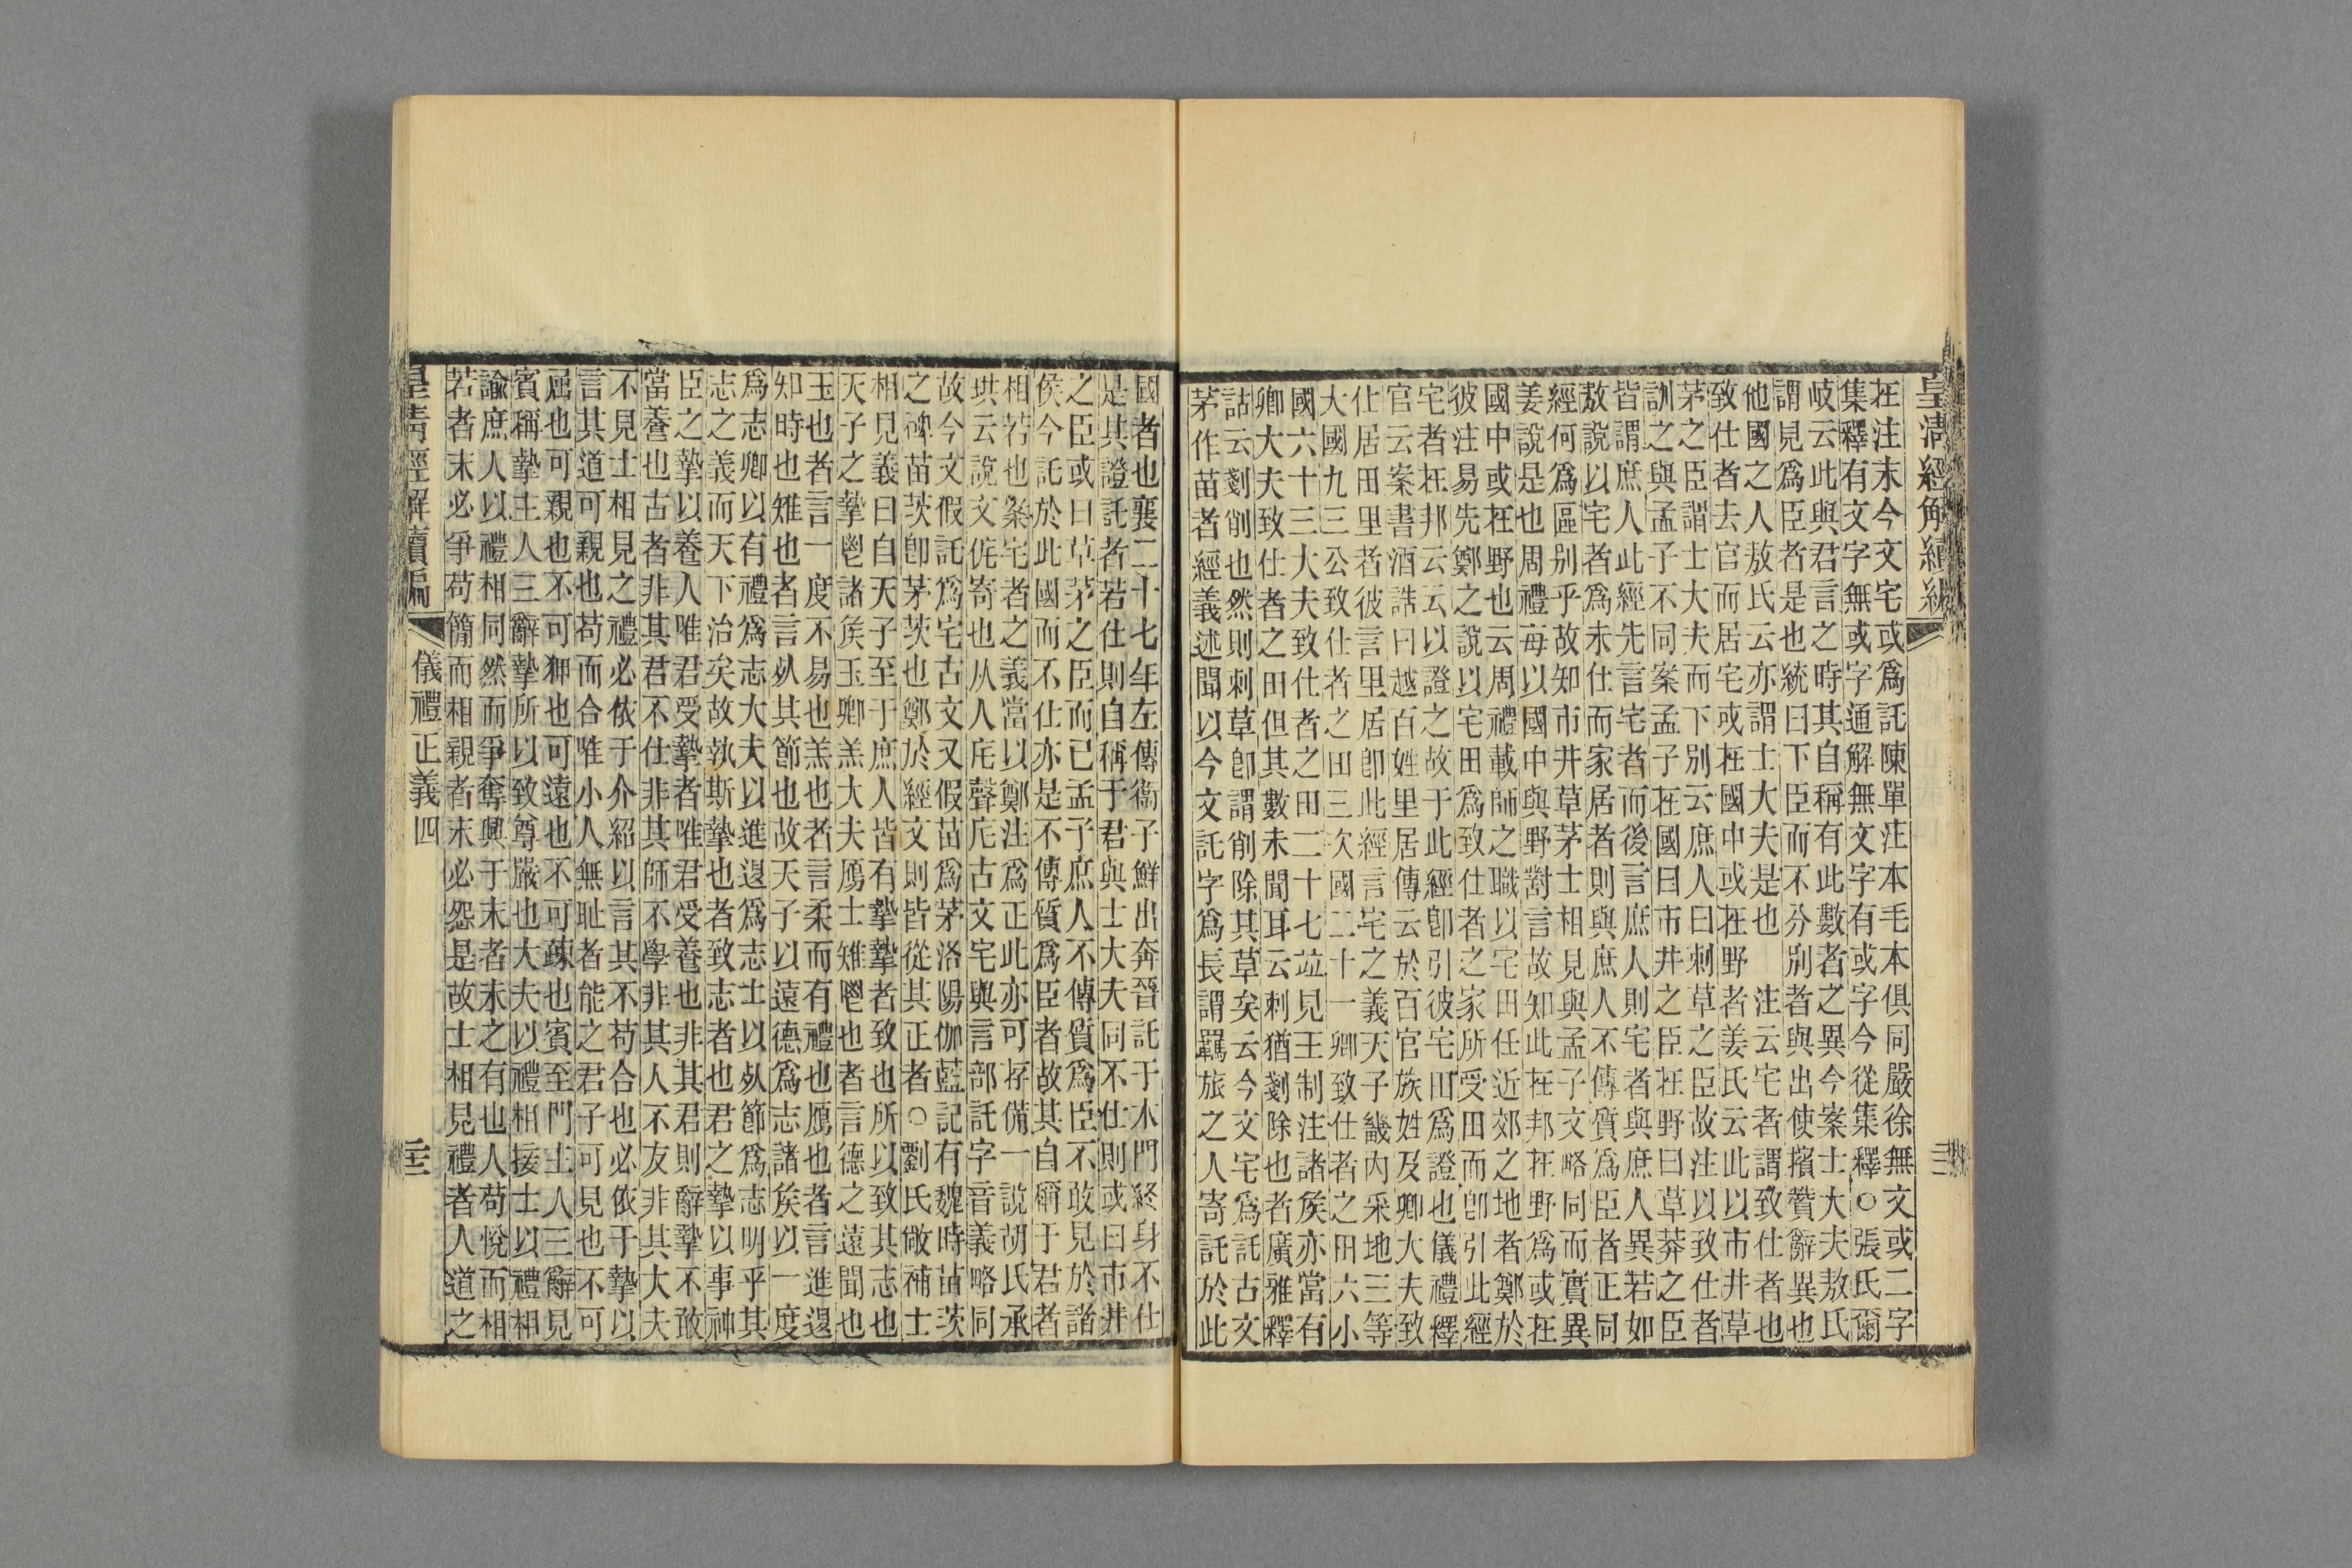 皇清經解續編
在注末今文宅或爲託陳單注本毛本俱同嚴徐無文或二字
集釋有文字無或字通解無文字有或字今從集釋○張氏爾
岐云此與君言之時其自稱有此數者之異今案士大夫敖氏
謂見爲臣者是也統曰下臣而不分別者與出使擯贊辭異也
他國之人敖氏云亦謂士大夫是也　注云宅者謂致仕者也
致仕者去官而居宅或在國中或在野者姜氏云此以市井草
茅之臣謂士大夫而下別云庶人曰刺草之臣故注以致仕者
訓之與孟子不同案孟子在國曰市井之臣在野曰草莽之臣
皆謂庶人此經先言宅者而後言庶人則宅者與庶人異若如
敖說以宅者爲未仕而家居者則與庶人不傳質爲臣者正同
經何爲區別乎故知市井草茅士相見與孟子文略同而實異
姜說是也周禮每以國中與野對言故知此在邦在野爲或在
國中或在野也云周禮載師之職以宅田任近郊之地者鄭於
彼注易先鄭之說以宅田爲致仕者之家所受田而卽引此經
宅者在邦云云以證之故于此經卽引彼宅田爲證也儀禮釋
官云案書酒誥曰越百姓里居傳云於百官族姓及卿大夫致
仕居田里者彼言里居卽此經言宅之義天子畿內采地三等
大國九三公致仕者之田三次國二十一卿致仕者之田六小
國六十三大夫致仕者之田二十七竝見王制注諸侯亦當有
卿大夫致仕者之田但其數未聞耳云刺猶剗除也者廣雅釋
詁云剗削也然則刺草卽謂削除其草矣云今文宅爲託古文
茅作苗者經義述聞以今文託字爲長謂羈旅之人寄託於此
國者也襄二十七年左傳衞子鮮出奔晉託于木門終身不仕
是其證託者若仕則自稱于君與士大夫同不仕則或曰市井
之臣或曰草茅之臣而已孟子庶人不傳質爲臣不敢見於諸
侯今託於此國而不仕亦是不傳質爲臣者故其自稱于君者
相若也案宅者之義當以鄭注爲正此亦可存備一說胡氏承
珙云說文侂寄也从人庀聲庀古文宅與言部託字音義略同
故今文假託爲宅古文又假苗爲茅洛陽伽藍記有魏時苗茨
之碑苗茨卽茅茨也鄭於經文則皆從其正者○劉氏敞補士
相見義曰自天子至于庶人皆有摯摯者致也所以致其志也
天子之摯鬯諸侯玉卿羔大夫鴈士雉鬯也者言德之遠聞也
玉也者言一度不易也羔也者言柔而有禮也鴈也者言進退
知時也雉也者言死其節也故天子以遠德爲志諸侯以一度
爲志卿以有禮爲志大夫以進退爲志士以死節爲志明乎其
志之義而天下治矣故執斯摯也者致志者也君之摯以事神
臣之摯以養人唯君受摯者唯君受養也非其君則辭摯不敢
當養也古者非其君不仕非其師不學非其人不友非其大夫
不見士相見之禮必依于介紹以言其不苟合也必依于摯以
言其道可親也苟而合唯小人無恥者能之君子可見也不可
屈也可親也不可狎也可遠也不可疎也賓至門主人三辭見
賓稱摯主人三辭摯所以致尊嚴也大夫以禮相接士以禮相
諭庶人以禮相同然而爭奪興于末者未之有也人苟悅而相
若者末必爭苟簡而相親者末必怨是故士相見禮者人道之
皇清經解續編　儀禮正義四